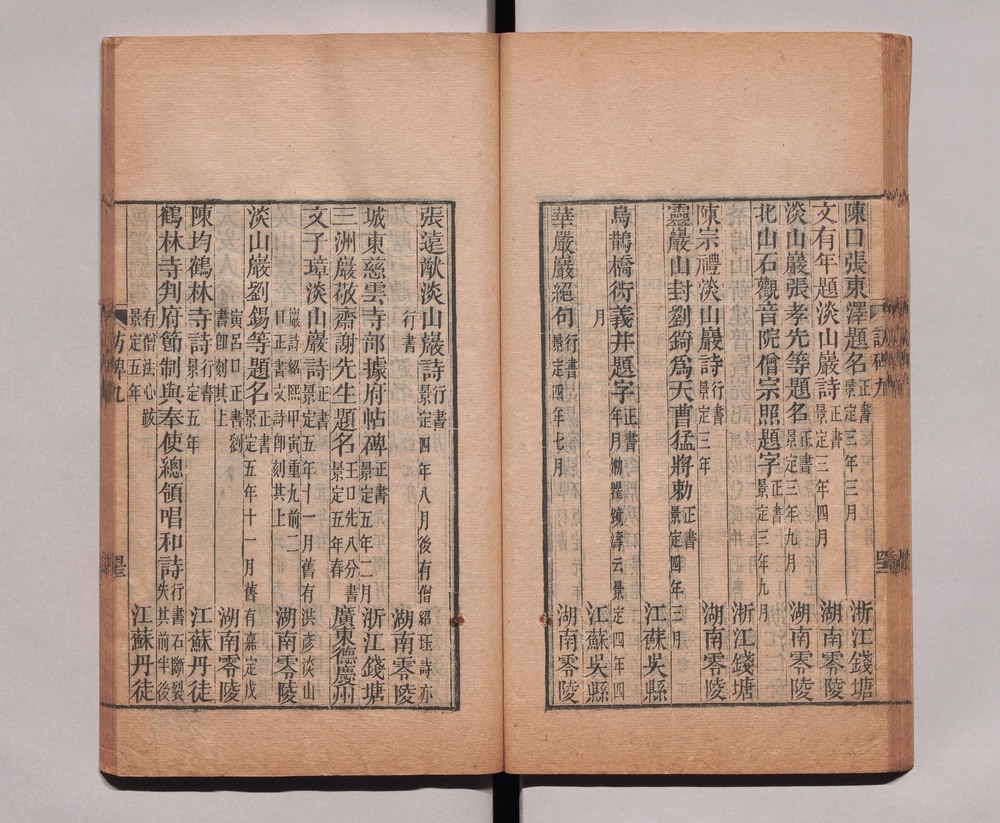 陳口張東澤題名正書景定三年三月 浙江錢塘
文有年題淡山巖詩正書景定三年四月 湖南零陵
淡山巖張孝先等題名正書景定三年九月 湖南零陵
北山石觀音院僧宗照題字正書景定三年九月 浙江錢塘
陳宗禮淡山巖詩行書景定三年 湖南零陵
靈巖山封劉錡爲天曹猛將勅正書景定四年三月 江蘇吳縣
烏鵲橋衖義井題字正書年月泐瞿鏡濤云景定四年四月 江蘇吳縣
華嚴巖絕句行書景定四年七月 湖南零陵
張遠猷淡山巖詩行書景定四年八月後有僧紹珏詩亦行書 湖南零陵
城東慈雲寺部據府帖碑正書景定五年二月 浙江錢塘
三洲巖敬齋謝先生題名王口先八分書景定五年春 廣東德慶州
文子璋淡山巖詩正書景定五年十一月舊有洪彥淡山巖詩紹熙甲寅重九前二日正書文詩卽刻其上 湖南零陵
淡山巖劉錫等題名正書景定五年十一月舊有嘉定戊寅呂口正書劉書卽刻其上 湖南零陵
陳均鶴林寺詩行書景定五年 江蘇丹徒
鶴林寺判府節制與奉使總領唱和詩行書石斷裂失其前半後有僧法心跋景定五年 江蘇丹徒
訪碑九